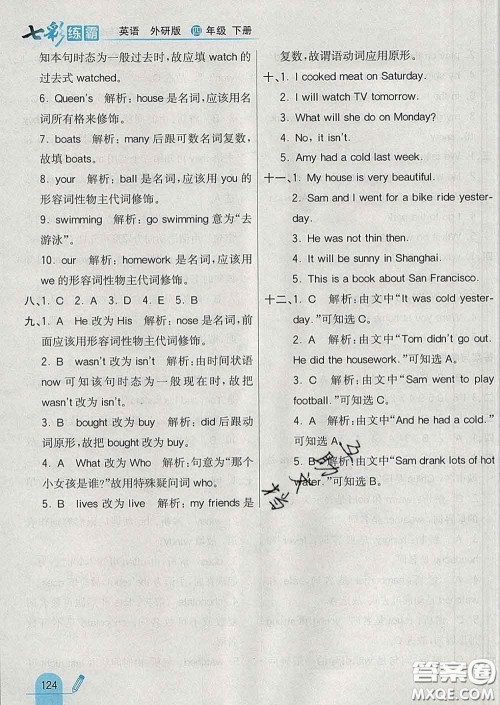 七彩练霸 英语 外研版 四年级 下册
知本句时态为一般过去时,故应填 watch 的
过去式 watched。
6. Queen's 解析:house 是名词,应该用名
词所有格来修饰。
7. boats 解析:many 后跟可数名词复数,
故填 boats。
8. your 解析:ball 是名词,应该用 you 的
形容词性物主代词修饰。
9. swimming 解析:go swimming 意为“去
游泳”。
10. our 解析:homework 是名词,应该用
we 的形容词性物主代词修饰。
八、1. C 2. A 3. D 4. E 5. B
九、1. A He 改为 His 解析:nose 是名词,前
面应该用形容词性物主代词修饰。
2. B wasn't 改为 isn't 解析:由时间状语
now 可知该句时态为一般现在时,故把
wasn't 改为 isn't。
3. B bought 改为 buy 解析:did 后跟动
词原形,故把 bought 改为 buy。
4. A What 改为 Who 解析:句意为“那个
小女孩是谁?”故用特殊疑问词 who。
5. B lives 改为 live 解析:my friends 是
复数,故谓语动词应用原形。
十、1. I cooked meat on Saturday.
2. I will watch TV tomorrow.
3. What will she do on Monday?
4. No, it isn't.
5. Amy had a cold last week.
十一、1. My house is very beautiful.
2. Sam and I went for a bike ride yester-
day.
3. He was not thin then.
4. It will be sunny in Shanghai.
5. This is a book about San Francisco.
十二、1. C 解析:由文中“It was cold yester-
day.”可知选 C。
2. A 解析:由文中“Tom didn't go out.
He did the housework.”可知选 A。
3. B 解析:由文中“Sam went to play
football.”可知选 C。
4. A 解析:由文中“And he had a cold.”
可知选 A。
5. B 解析:由文中“Sam drank lots of hot
water.”可知选 B。
124
答案圈
MXQE.COM